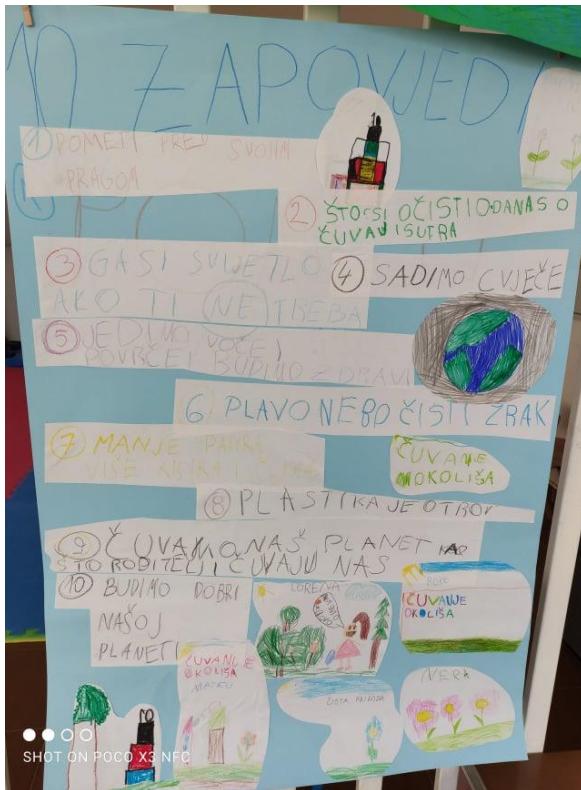 10 ZAPOVJEDI
1 POMETI PRED SVOJIM
PRAGOM
2 ŠTO SI OČISTIO DANAS O
ČUVAJ I SUTRA
3 GASI SVIJETLO
AKO TI NE TREBA
4 SADIMO CVJEČE
5 JEDIMO VOĆE I
POVRČE I BUDIMO ZDRAVI
6 PLAVO NEBO ČISTI ZRAK
7 MANJE PAPIRA
VIŠE
ČUVANJE
OKOLIŠA
8 PLASTIKA JE OTROV
9 ČUVAMO NAŠ PLANET KAO
ŠTO RODITELJI ČUVAJU NAS
10 BUDIMO DOBRI
NAŠOJ
PLANETI
LORENA
ČUVANJE
OKOLIŠA
ČUVANJE
OKOLIŠA
MATEJ
ČISTA PRIRODA
NERA
SHOT ON POCO X3 NFC